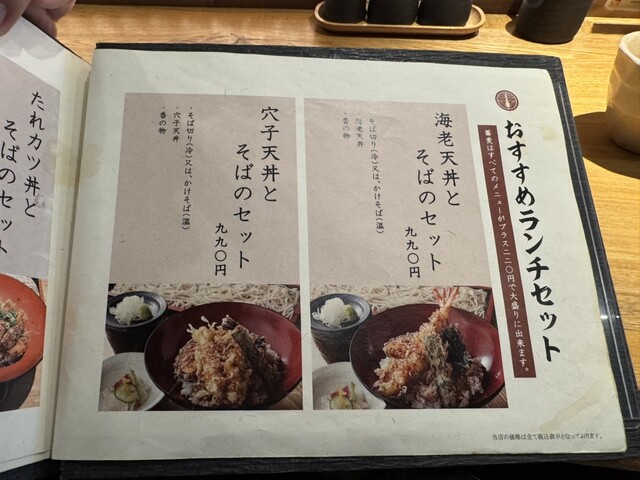 おすすめランチセット
蕎麦はすべてのメニューがプラス二二〇円で大盛りに出来ます。
海老天丼と
そばのセット
九九〇円
・そば切り(冷)又は、かけそば(温)
・海老天丼
・香の物
穴子天丼と
そばのセット
九九〇円
・そば切り(冷)又は、かけそば(温)
・穴子天丼
・香の物
たれカツ丼と
そばのセット
当店の価格は全て税込表示となっております。